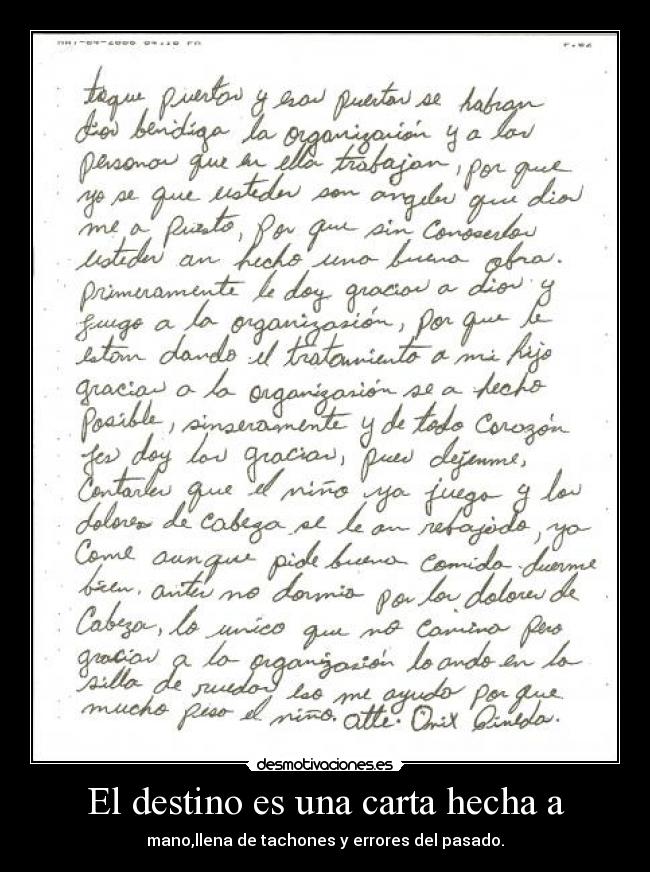 MAY-04-2006 04:18 PM P.02
toque puertas y esas puertas se habran
dios bendiga la organización y a las
personas que en ella trabajan, por que
yo se que ustedes son angeles que dios
me a puesto, por que sin conoserlos
ustedes an hecho una buena obra.
primeramente le doy gracias a dios y
juego a la organizasión, por que le
estan dando el tratamiento a mi hijo
gracias a la organizasión se a hecho
posible, sinseramente y de todo corazón
les doy las gracias, pues dejenme,
contarles que el niño ya juega y los
dolores de cabeza se le an rebajado, ya
come aunque pide buena comida duerme
bien. antes no dormia por los dolores de
cabeza, lo unico que no camina pero
gracias a la organizasión lo ando en la
silla de ruedas eso me ayuda por que
mucho pesa el niño. atte. Onix Pineda.
desmotivaciones.es
El destino es una carta hecha a
mano,llena de tachones y errores del pasado.